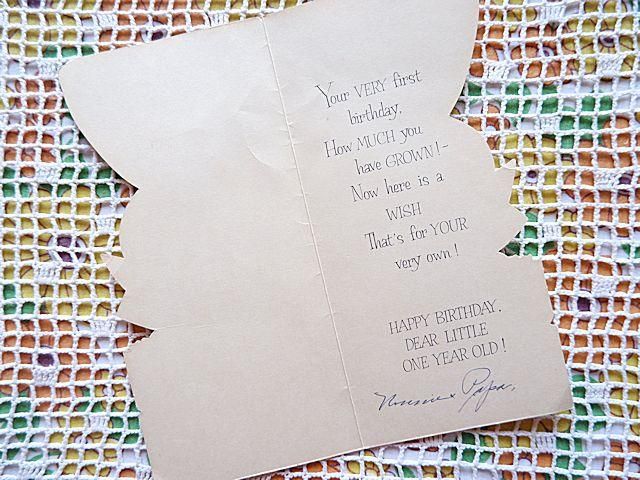 Your VERY first
birthday,
How MUCH you
have GROWN!~
Now here is a
WISH
That's for YOUR
very own!
HAPPY BIRTHDAY,
DEAR LITTLE
ONE YEAR OLD!
Nonnie & Papa,